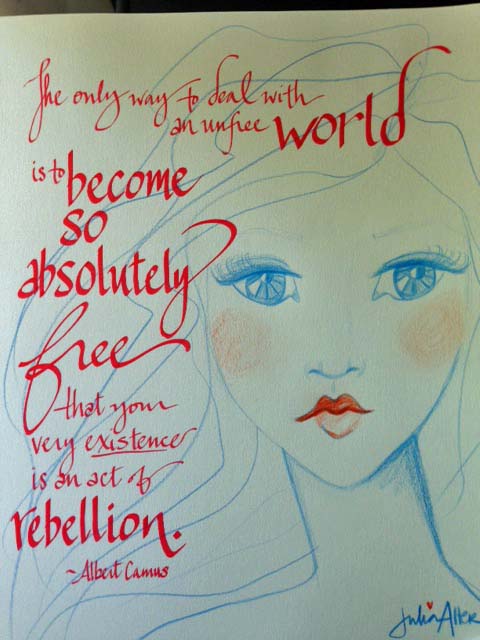 The only way to deal with
an unfree world
is to become
so
absolutely
free
that your
very existence
is an act of
rebellion.
~Albert Camus
Julia Alter